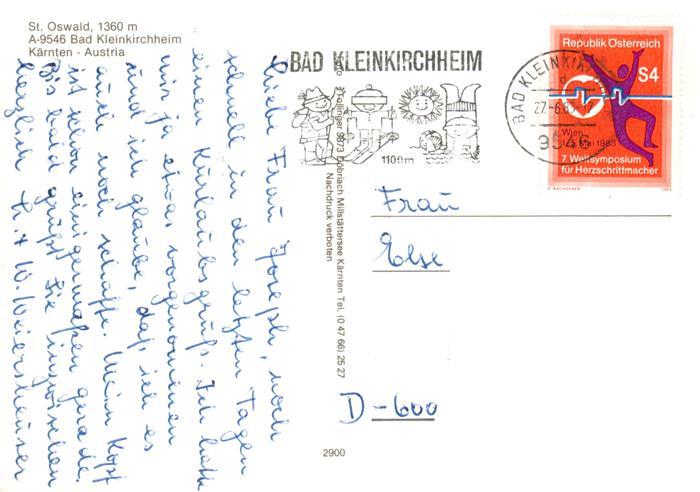 St. Oswald, 1360 m
A-9546 Bad Kleinkirchheim
Kärnten - Austria
Liebe Frau Joseph, noch
schnell in den letzten Tagen
einen Kurlaubsgruß. Ich hatte
mir ja etwas vorgenommen
und ich glaube, daß ich es
auch noch schaffe. Mein Kopf
ist schon einigermaßen gerade.
Bis bald grüßt Sie inzwischen
herzlich
BAD KLEINKIRCHHEIM
1100m
Nachdruck verboten
Döbriach Millstättersee Kärnten Tel. (0 47 66) 25 27
2900
BAD KLEINKI
27.-6.8
9546
Republik Österreich
S4
Wien
Mai 1983
7. Weltsymposium
für Herzschrittmacher
1983
Frau
Else
D-600